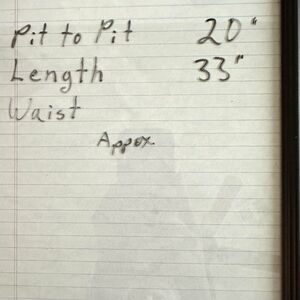 Pit to Pit 20"
Length 33"
Waist
Appox.